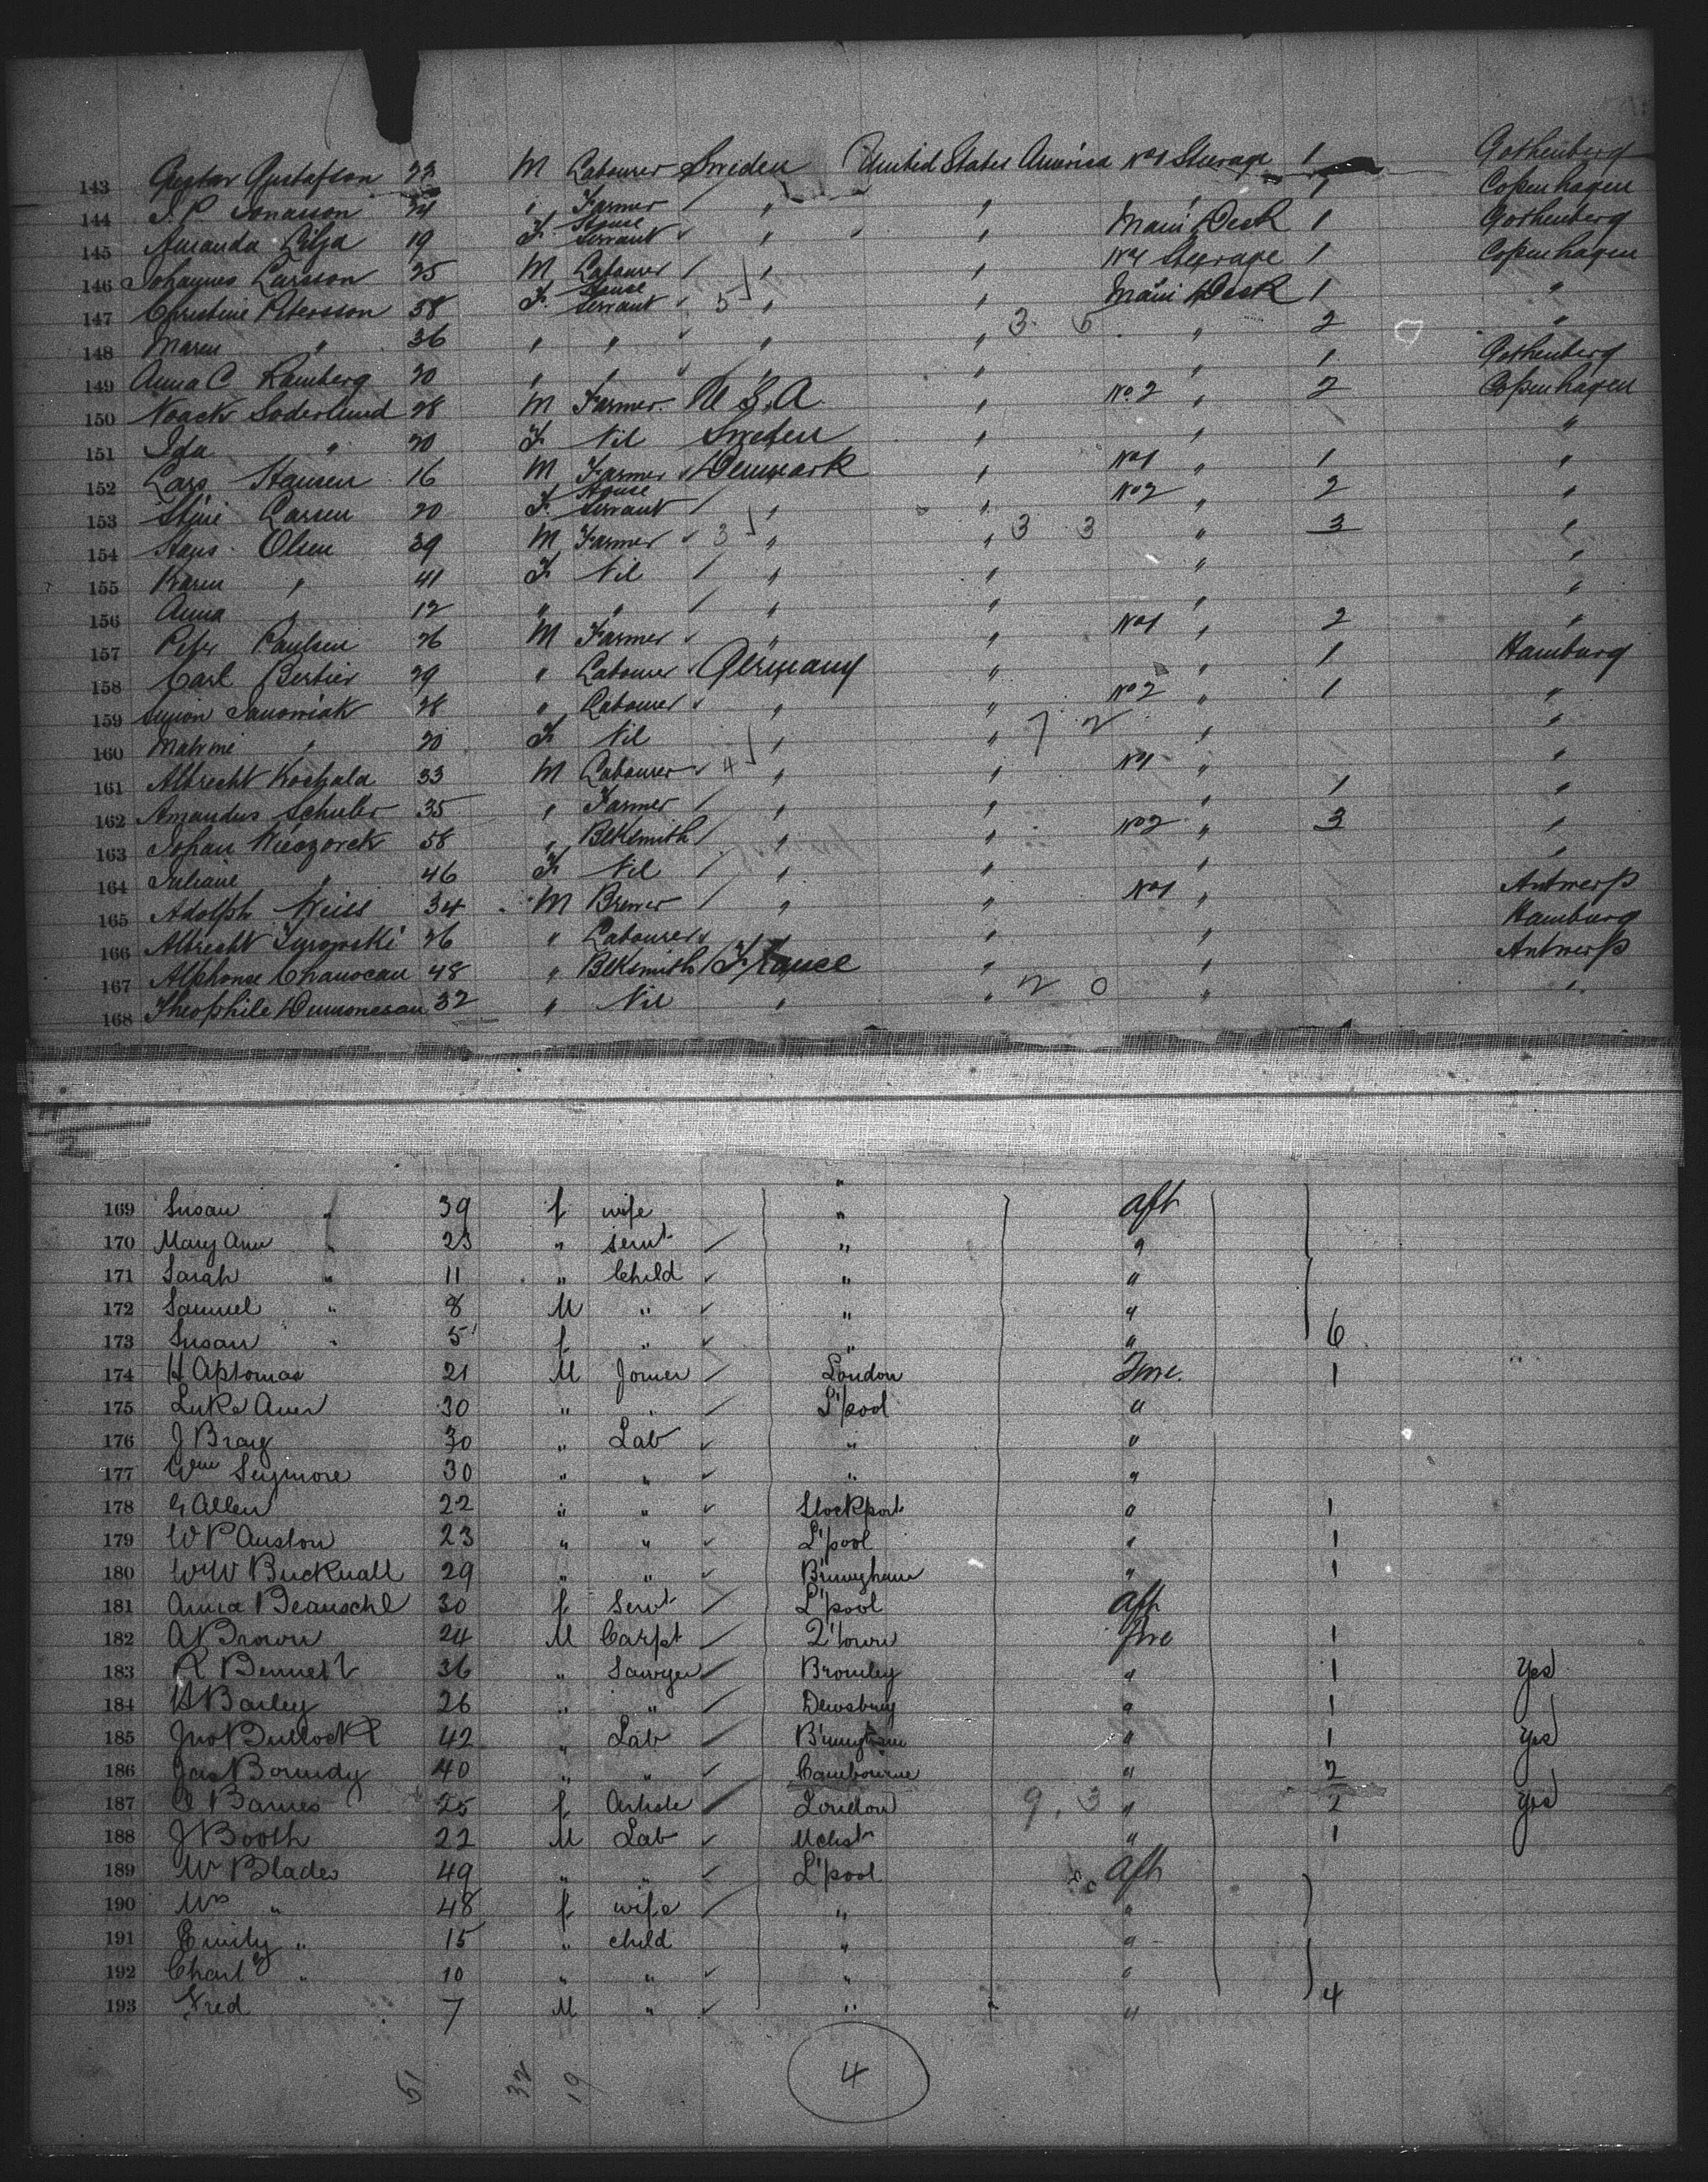 143 Gustav Gustafson 23 M Labourer Sweden United States America No 1 Steerage 1 Gothenberg
144 J. P. Jonasson 24 " Farmer / " " " 1 Copenhagen
145 Amanda Lilja 19 F House Servant " " Main Deck 1 Gothenberg
146 Johannes Larsson 25 M Labourer / " " No 1 Steerage 1 Copenhagen
147 Christine Petersson 58 F House Servant 5 " " Main Deck 1 "
148 Maren " 36 " " " " 3 5 " 2 "
149 Anna C Ramberg 20 " " " " " 1 Gothenberg
150 Noack Soderlund 28 M Farmer U.S.A. " No. 2 " 2 Copenhagen
151 Ida " 20 F Nil Sweden " " "
152 Lars Hansen 16 M Farmer Denmark " No 1 " 1 "
153 Stine Larsen 20 F House Servant / " " No 2 " 2 "
154 Hans Olsen 39 M Farmer 3 " " 3 3 " 3 "
155 Karen " 41 F Nil / " " " "
156 Anna " 12 " " / " " " "
157 Peter Paulsen 26 M Farmer " " No 1 " 2 "
158 Carl 29 " Labourer Germany " " 1 Hamburg
159 Simon Janowiak 28 " Labourer " " No 2 " 1 "
160 " 20 F Nil " " 7 2 " "
161 Albrecht Kochala 33 M Labourer 4 " " No 1 " "
162 Amandus Schuler 35 " Farmer / " " " 1 "
163 Johan Wieczorek 58 " Blksmith / " " No 2 " 3 "
164 Juliane " 46 F Nil / " " " "
165 Adolph Weiss 34 M Brewer / " " No 1 " Antwerp
166 Albrecht Turowski 26 " Labourer " " " Hamburg
167 Alphonse 48 " Blksmith / France " " Antwerp
168 Theophile 32 " Nil " " 2 0 " "
2
"
169 Susan " 39 f wife " aft
170 Mary Ann " 23 " servt / " "
171 Sarah " 11 " Child " "
172 Samuel " 8 M " " "
173 Susan " 5 f " " " 6
174 H Aptomas 21 M Joiner / London Fore. 1
175 Luke Auer 30 " " / L'pool "
176 J Bray 30 " Lab " "
177 Wm Seymore 30 " " " "
178 G Allen 22 " " Stockport " 1
179 W P Auston 23 " " L'pool " 1
180 W W Bucknall 29 " " B'mngham " 1
181 Anna Beauschl 30 f Servt / L'pool Aft
182 A Brown 24 M Carpt / Q'town Fore 1
183 R Bennett 36 " Sawyer / Bromley " 1 Yes
184 H Bailey 26 " " / Dewsbury " 1
185 Jno Bullock 42 " Lab / B'mngham " 1 Yes
186 Jas 40 " " / Cambourne " 2
187 Barnes 25 f Artiste / London 9, 3 " 2 Yes
188 J Booth 22 M Lab Mchst " 1
189 W Blades 49 " " L'pool Aft
190 Mrs " 48 f wife / " "
191 Emily " 15 " child " "
192 " 10 " " " "
193 Fred 7 M " " " 4
51 32 19 4